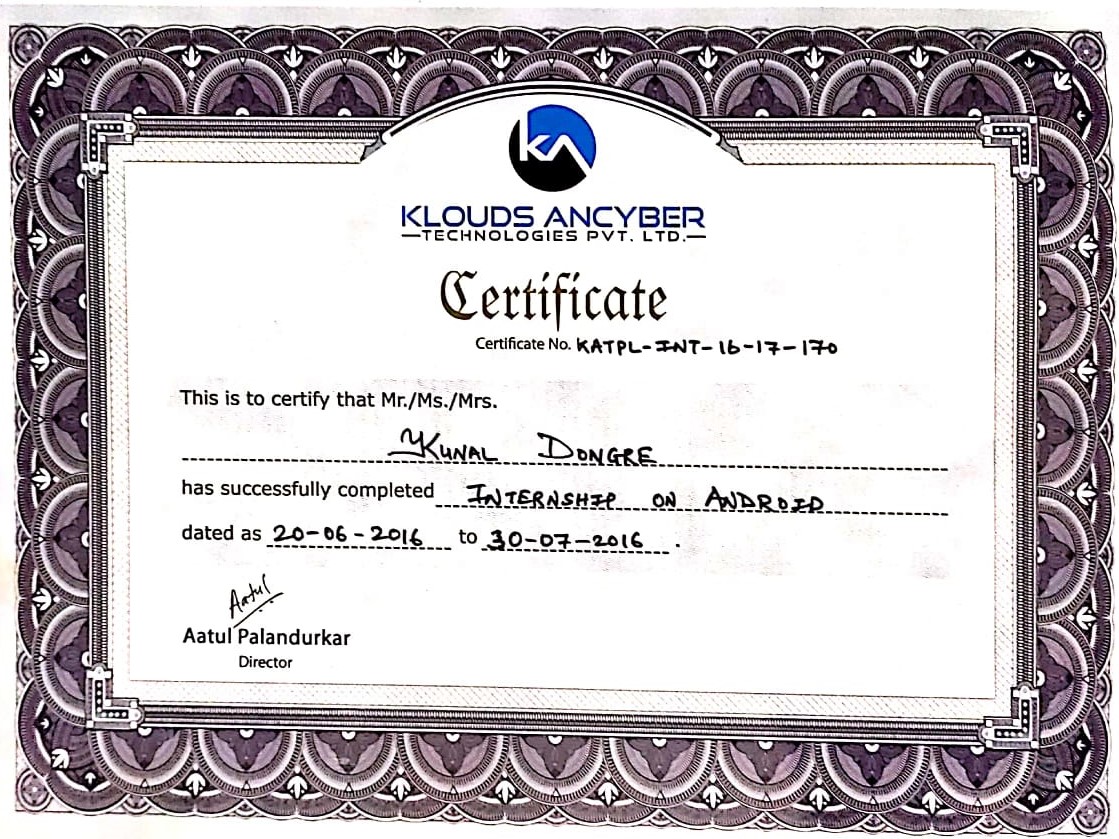 KA
KLOUDS ANCYBER
TECHNOLOGIES PVT. LTD.
Certificate
Certificate No. KATPL-INT-16-17-170
This is to certify that Mr./Ms./Mrs.
KUNAL DONGRE
has successfully completed INTERNSHIP ON ANDROID
dated as 20-06-2016 to 30-07-2016.
Aatul
Aatul Palandurkar
Director